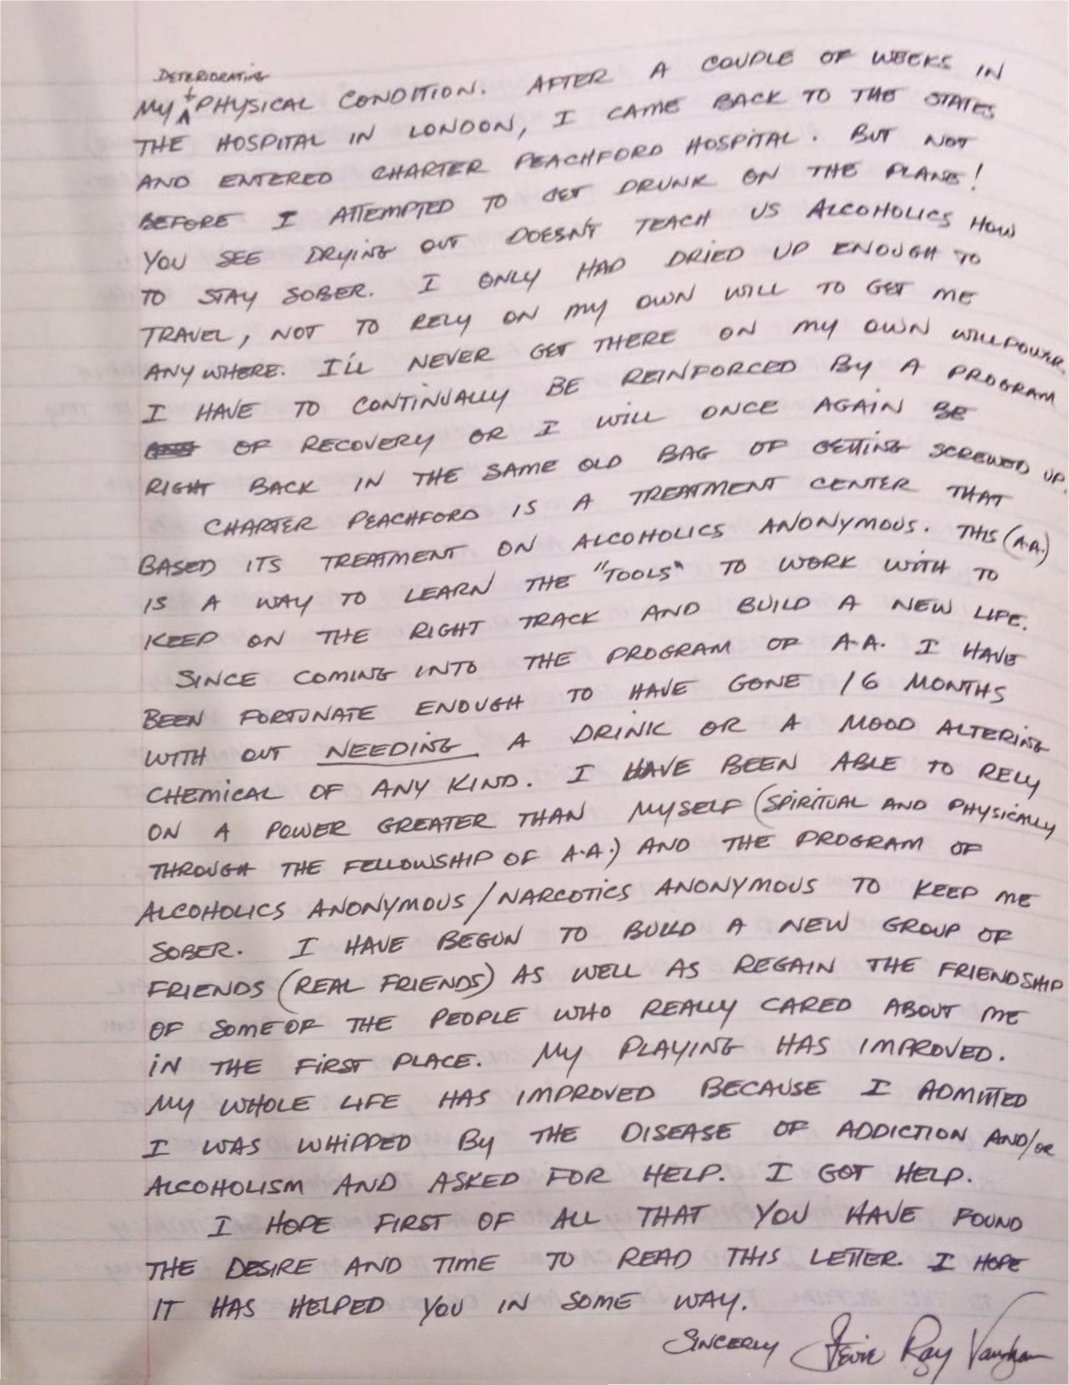 DETERIORATING
MY PHYSICAL CONDITION. AFTER A COUPLE OF WEEKS IN
THE HOSPITAL IN LONDON, I CAME BACK TO THE STATES
AND ENTERED CHARTER PEACHFORD HOSPITAL. BUT NOT
BEFORE I ATTEMPTED TO GET DRUNK ON THE PLANE!
YOU SEE DRYING OUT DOESN'T TEACH US ALCOHOLICS HOW
TO STAY SOBER. I ONLY HAD DRIED UP ENOUGH TO
TRAVEL, NOT TO RELY ON MY OWN WILL TO GET ME
ANYWHERE. I'LL NEVER GET THERE ON MY OWN WILLPOWER.
I HAVE TO CONTINUALLY BE REINFORCED BY A PROGRAM
OF RECOVERY OR I WILL ONCE AGAIN BE
RIGHT BACK IN THE SAME OLD BAG OF GETTING SCREWED UP.
CHARTER PEACHFORD IS A TREATMENT CENTER THAT
BASED ITS TREATMENT ON ALCOHOLICS ANONYMOUS. THIS (A.A.)
IS A WAY TO LEARN THE "TOOLS" TO WORK WITH TO
KEEP ON THE RIGHT TRACK AND BUILD A NEW LIFE.
SINCE COMING INTO THE PROGRAM OF A.A. I HAVE
BEEN FORTUNATE ENOUGH TO HAVE GONE 16 MONTHS
WITH OUT NEEDING A DRINK OR A MOOD ALTERING
CHEMICAL OF ANY KIND. I HAVE BEEN ABLE TO RELY
ON A POWER GREATER THAN MYSELF (SPIRITUAL AND PHYSICALLY
THROUGH THE FELLOWSHIP OF A.A.) AND THE PROGRAM OF
ALCOHOLICS ANONYMOUS/NARCOTICS ANONYMOUS TO KEEP ME
SOBER. I HAVE BEGUN TO BUILD A NEW GROUP OF
FRIENDS (REAL FRIENDS) AS WELL AS REGAIN THE FRIENDSHIP
OF SOME OF THE PEOPLE WHO REALLY CARED ABOUT ME
IN THE FIRST PLACE. MY PLAYING HAS IMPROVED.
MY WHOLE LIFE HAS IMPROVED BECAUSE I ADMITTED
I WAS WHIPPED BY THE DISEASE OF ADDICTION AND/OR
ALCOHOLISM AND ASKED FOR HELP. I GOT HELP.
I HOPE FIRST OF ALL THAT YOU HAVE FOUND
THE DESIRE AND TIME TO READ THIS LETTER. I HOPE
IT HAS HELPED YOU IN SOME WAY.
SINCERLY Stevie Ray Vaughan